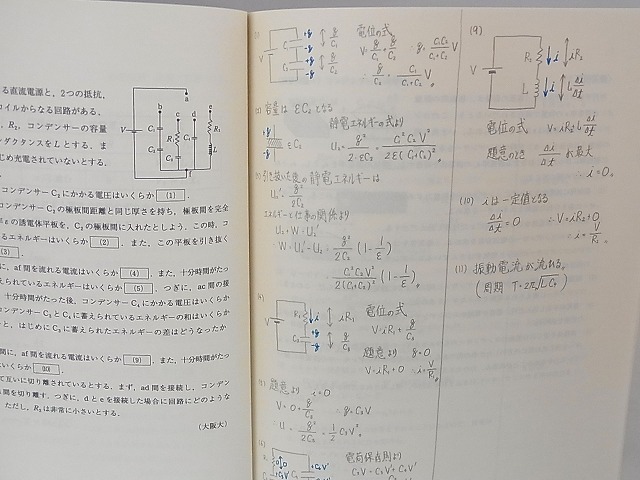 る直流電源と，2つの抵抗，
コイルからなる回路がある．
R₂，コンデンサーの容量
ダクタンスをLとする．ま
じめ充電されていないとする．
a
b
c
d
e
f
V
C₁
C₂
C₃
R₁
R₂
L
コンデンサーC₂にかかる電圧はいくらか (1) ．
C₂の極板間距離と同じ厚さを持ち，極板間を完全
率εの誘電体平板を，C₂の極板間に入れたとしよう．この時，コ
るエネルギーはいくらか (2) ．また，この平板を引き抜く
(3) ．
に，af間を流れる電流はいくらか (4) ．また，十分時間がたっ
えられているエネルギーはいくらか (5) ．つぎに，ac間の接
十分時間がたった後，コンデンサーC₃にかかる電圧はいくらか
エネルギーの和はいくらか
と，はじめにC₃に蓄えられたエネルギーの差はどうなったか
間に，af間を流れる電流はいくらか (9) ．また，十分時間がたっ
か (10) ．
て互いに切り離されているとする．まず，ad間を接続し，コンデン
間を切り離す．つぎに，dとeを接続した場合に回路にどのような
ただし，R₂は非常に小さいとする．
(大阪大)
電位の式
V=q/C₁+q/C₂ ∴q=C₁C₂/(C₁+C₂) V
∴q/C₂=C₁/(C₁+C₂) V
(2) 容量は εC₂となる
静電エネルギーの式より
U₂=q²/(2・εC₂)=C₁²C₂V²/(2ε(C₁+C₂)²)
(3) 引き抜いた後の静電エネルギーは
U₂'=q²/2C₂
エネルギーと仕事の関係より
U₂+W=U₂'
∴W=U₂'-U₂=q²/2C₂(1-1/ε)
=C₁²C₂V²/(2(C₁+C₂)²)(1-1/ε)
(4)
電位の式
V=iR₁+q/C₃
題意より q=0
V=iR₁+0 ∴i=V/R₁
(5) 題意より i=0
V=0+q/C₃ ∴q=C₃V
∴U=q²/2C₃=1/2 C₃V²
(6)
電荷保存則より
C₃V=C₃V'+C₄V'
(9)
V
R₂
iR₂
L
L Δi/Δt
電位の式 V=iR₂+L Δi/Δt
題意のとき Δi/Δt が最大
∴i=0
(10) iは一定値となる
Δi/Δt=0 ∴V=iR₂+0
∴i=V/R₂
(11) 振動電流が流れる。
(周期 T=2π√LC₃)